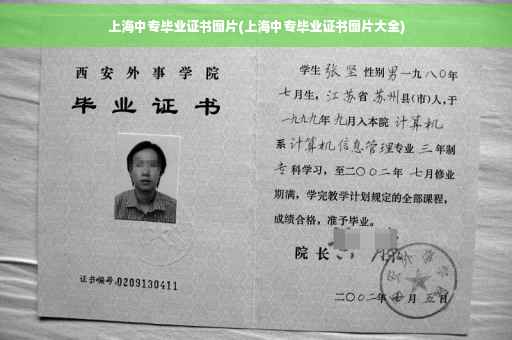 上海中专毕业证书图片(上海中专毕业证书图片大全)
西安外事学院
毕业证书
证书编号:0209130411
学生 张坚 性别 男 一九八〇年
七月生，江苏省 苏州县(市)人，于
一九九九年 九月入本院 计算机
系 计算机信息管理专业 三 年制
专 科学习，至二〇〇二年 七月修业
期满，学完教学计划规定的全部课程，
成绩合格，准予毕业。
院长
二〇〇二年 月 五日